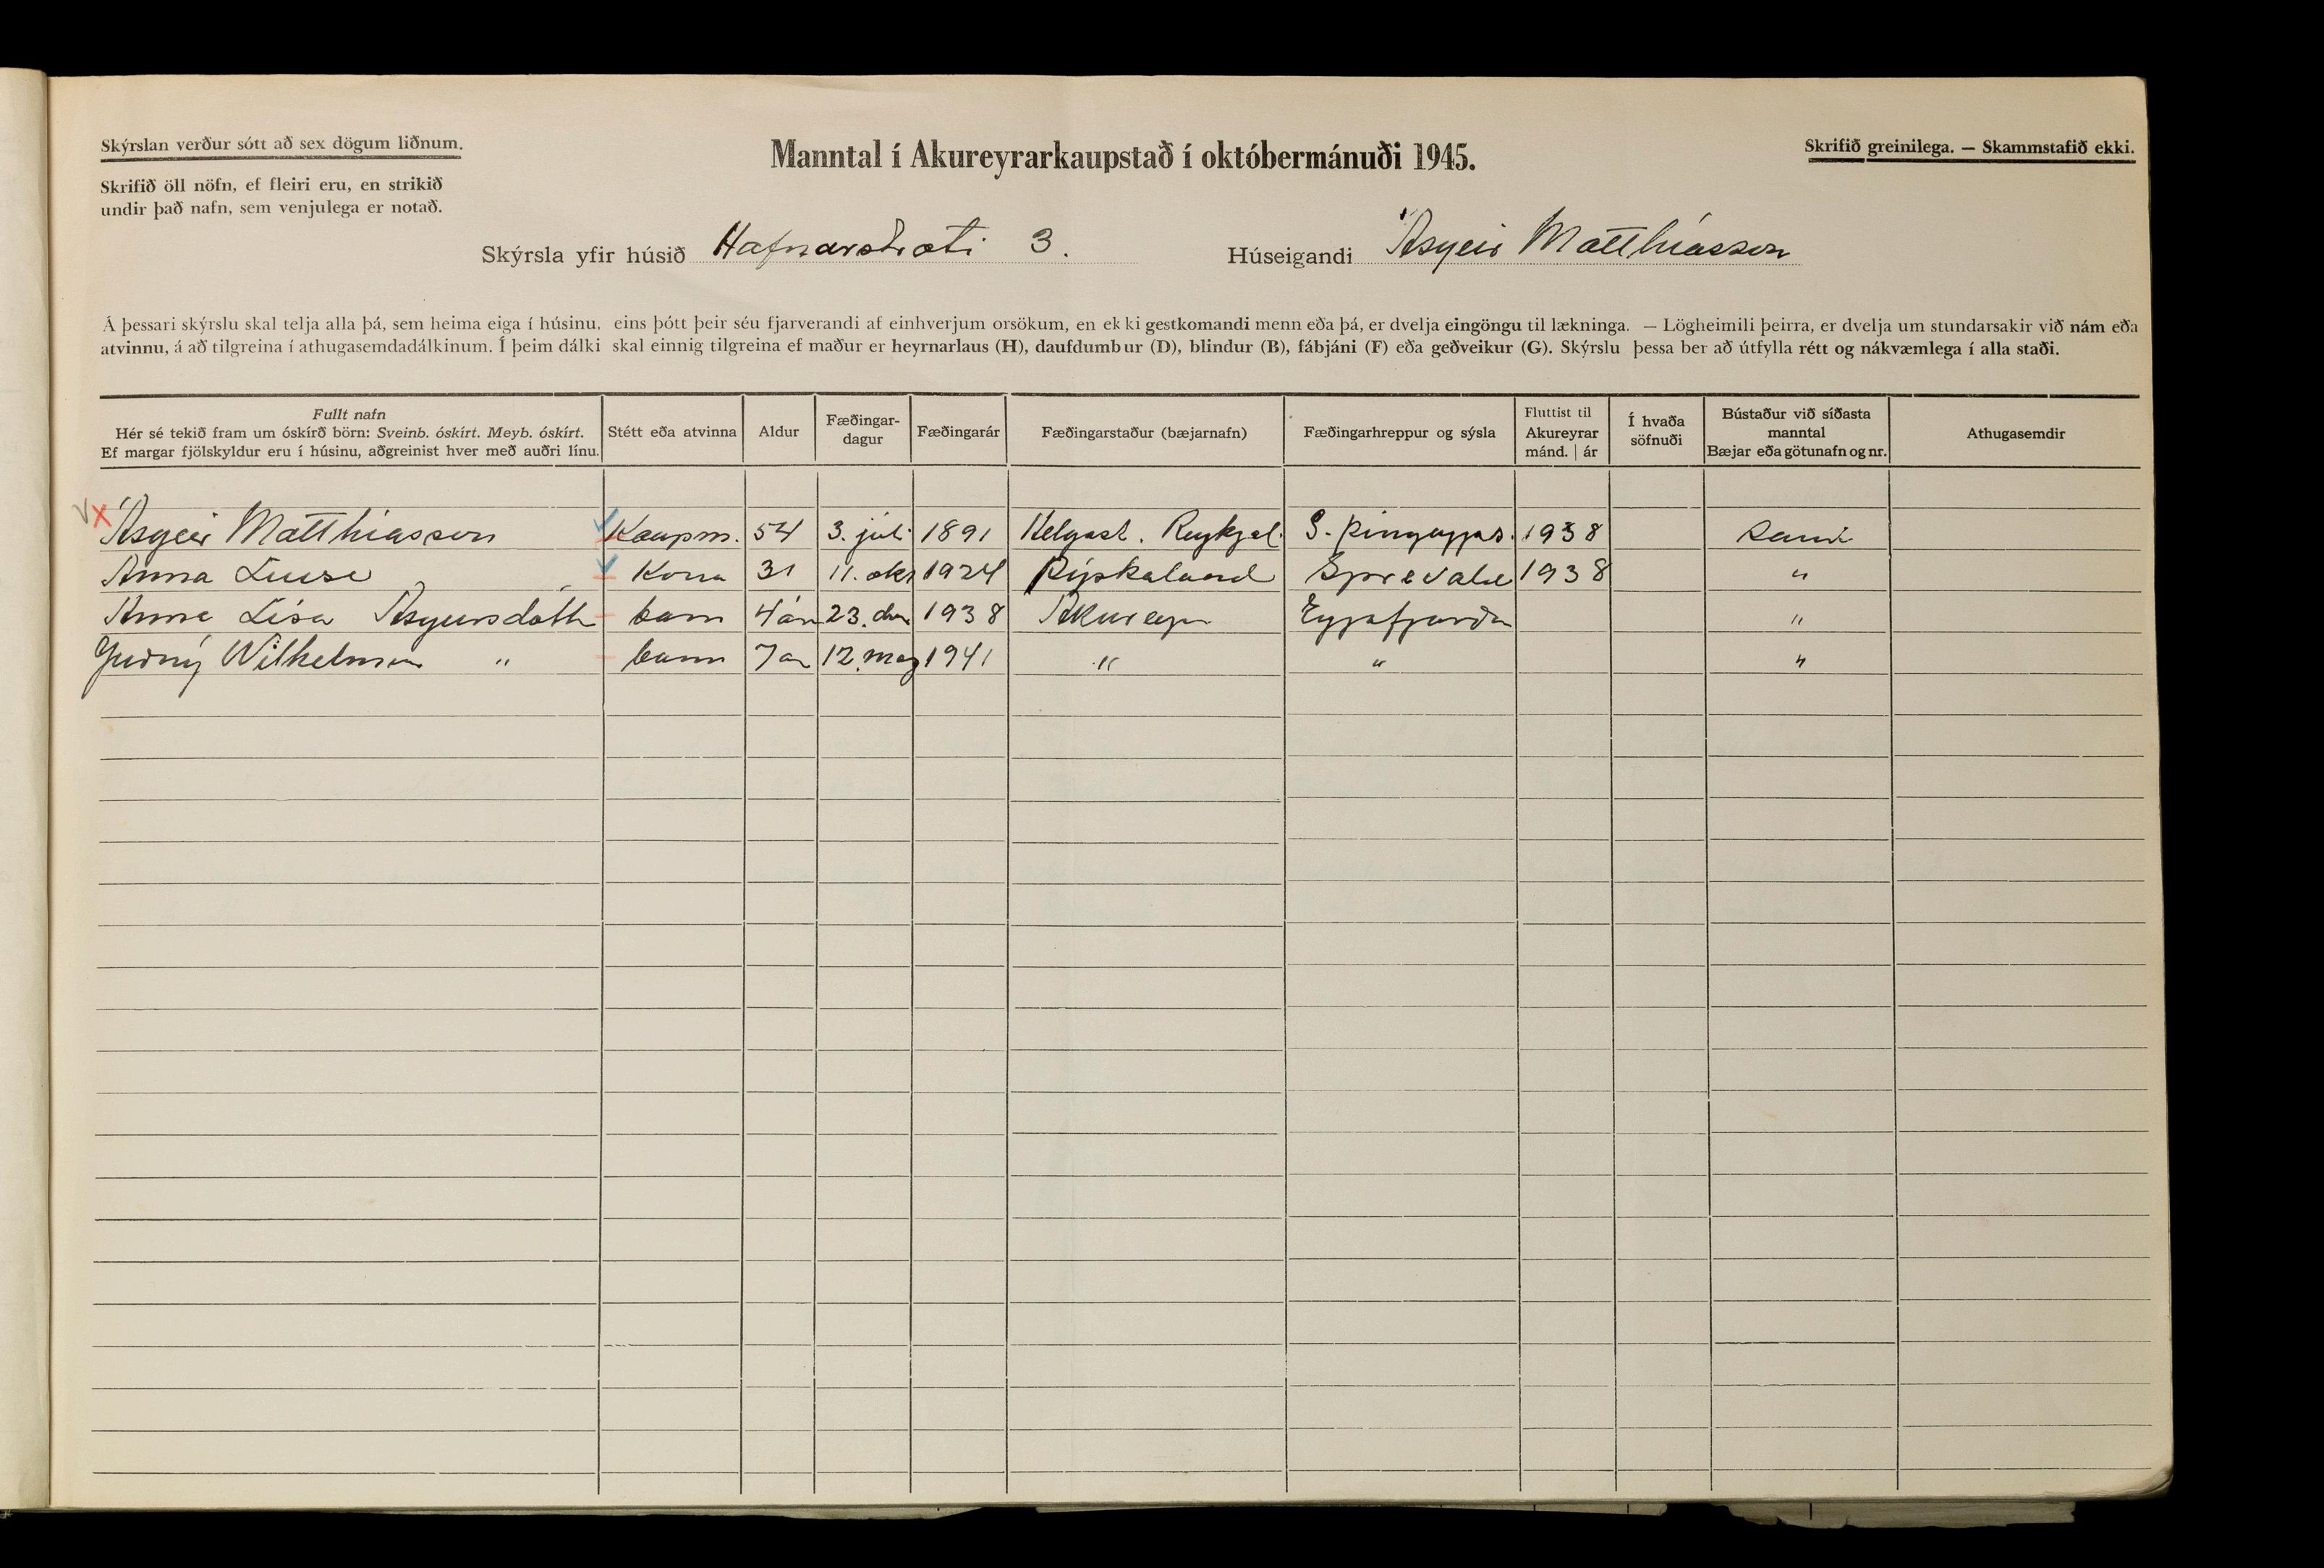 Skýrslan verður sótt að sex dögum liðnum.
Skrifið öll nöfn, ef fleiri eru, en strikið
undir það nafn, sem venjulega er notað.
Manntal í Akureyrarkaupstað í októbermánuði 1945.
Skrifið greinilega. — Skammstafið ekki.
Skýrsla yfir húsið Hafnarstræti 3. Húseigandi Ásgeir Matthíasson
Á þessari skýrslu skal telja alla þá, sem heima eiga í húsinu, eins þótt þeir séu fjarverandi af einhverjum orsökum, en ekki gestkomandi menn eða þá, er dvelja eingöngu til lækninga. — Lögheimili þeirra, er dvelja um stundarsakir við nám eða
atvinnu, á að tilgreina í athugasemdadálkinum. Í þeim dálki skal einnig tilgreina ef maður er heyrnarlaus (H), daufdumbur (D), blindur (B), fábjáni (F) eða geðveikur (G). Skýrslu þessa ber að útfylla rétt og nákvæmlega í alla staði.
Fullt nafn
Hér sé tekið fram um óskírð börn: Sveinb. óskírt. Meyb. óskírt.
Ef margar fjölskyldur eru í húsinu, aðgreinist hver með auðri línu.
Stétt eða atvinna
Aldur
Fæðingar-
dagur
Fæðingarár
Fæðingarstaður (bæjarnafn)
Fæðingarhreppur og sýsla
Fluttist til
Akureyrar
mánd. | ár
Í hvaða
söfnuði
Bústaður við síðasta
manntal
Bæjar eða götunafn og nr.
Athugasemdir
Ásgeir Matthíasson Kaupm. 54 3. júlí 1891 Helgast. Reykjal. S. Þingeyjas. 1938 Sami
Anna Luise Kona 31 11. okt 1924 Þýskaland 1938 "
Anna Lisa Ásgeirsdóttir barn 4 ára 23. des 1938 Akureyri Eyjafjarðar "
Guðný Wilhelmina " barn 7 ár 12. maj 1941 " " "